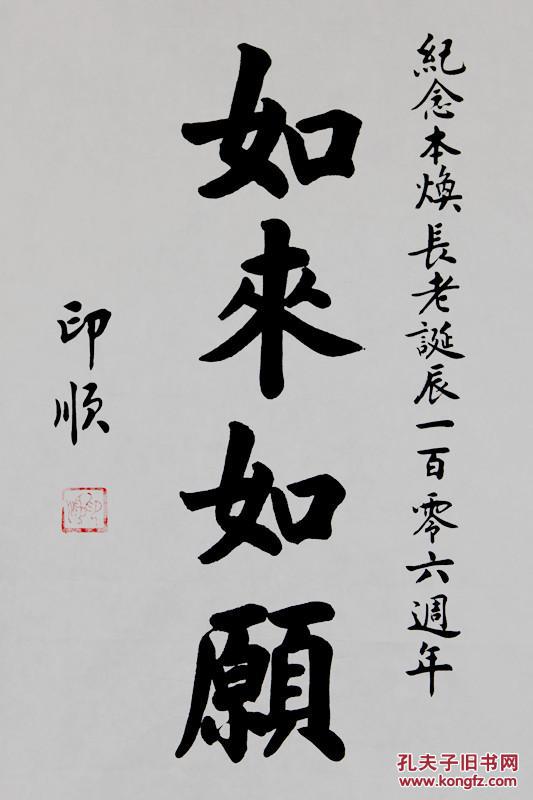 紀念本煥長老誕辰一百零六週年
如來如願
印順
孔夫子旧书网
www.kongfz.com